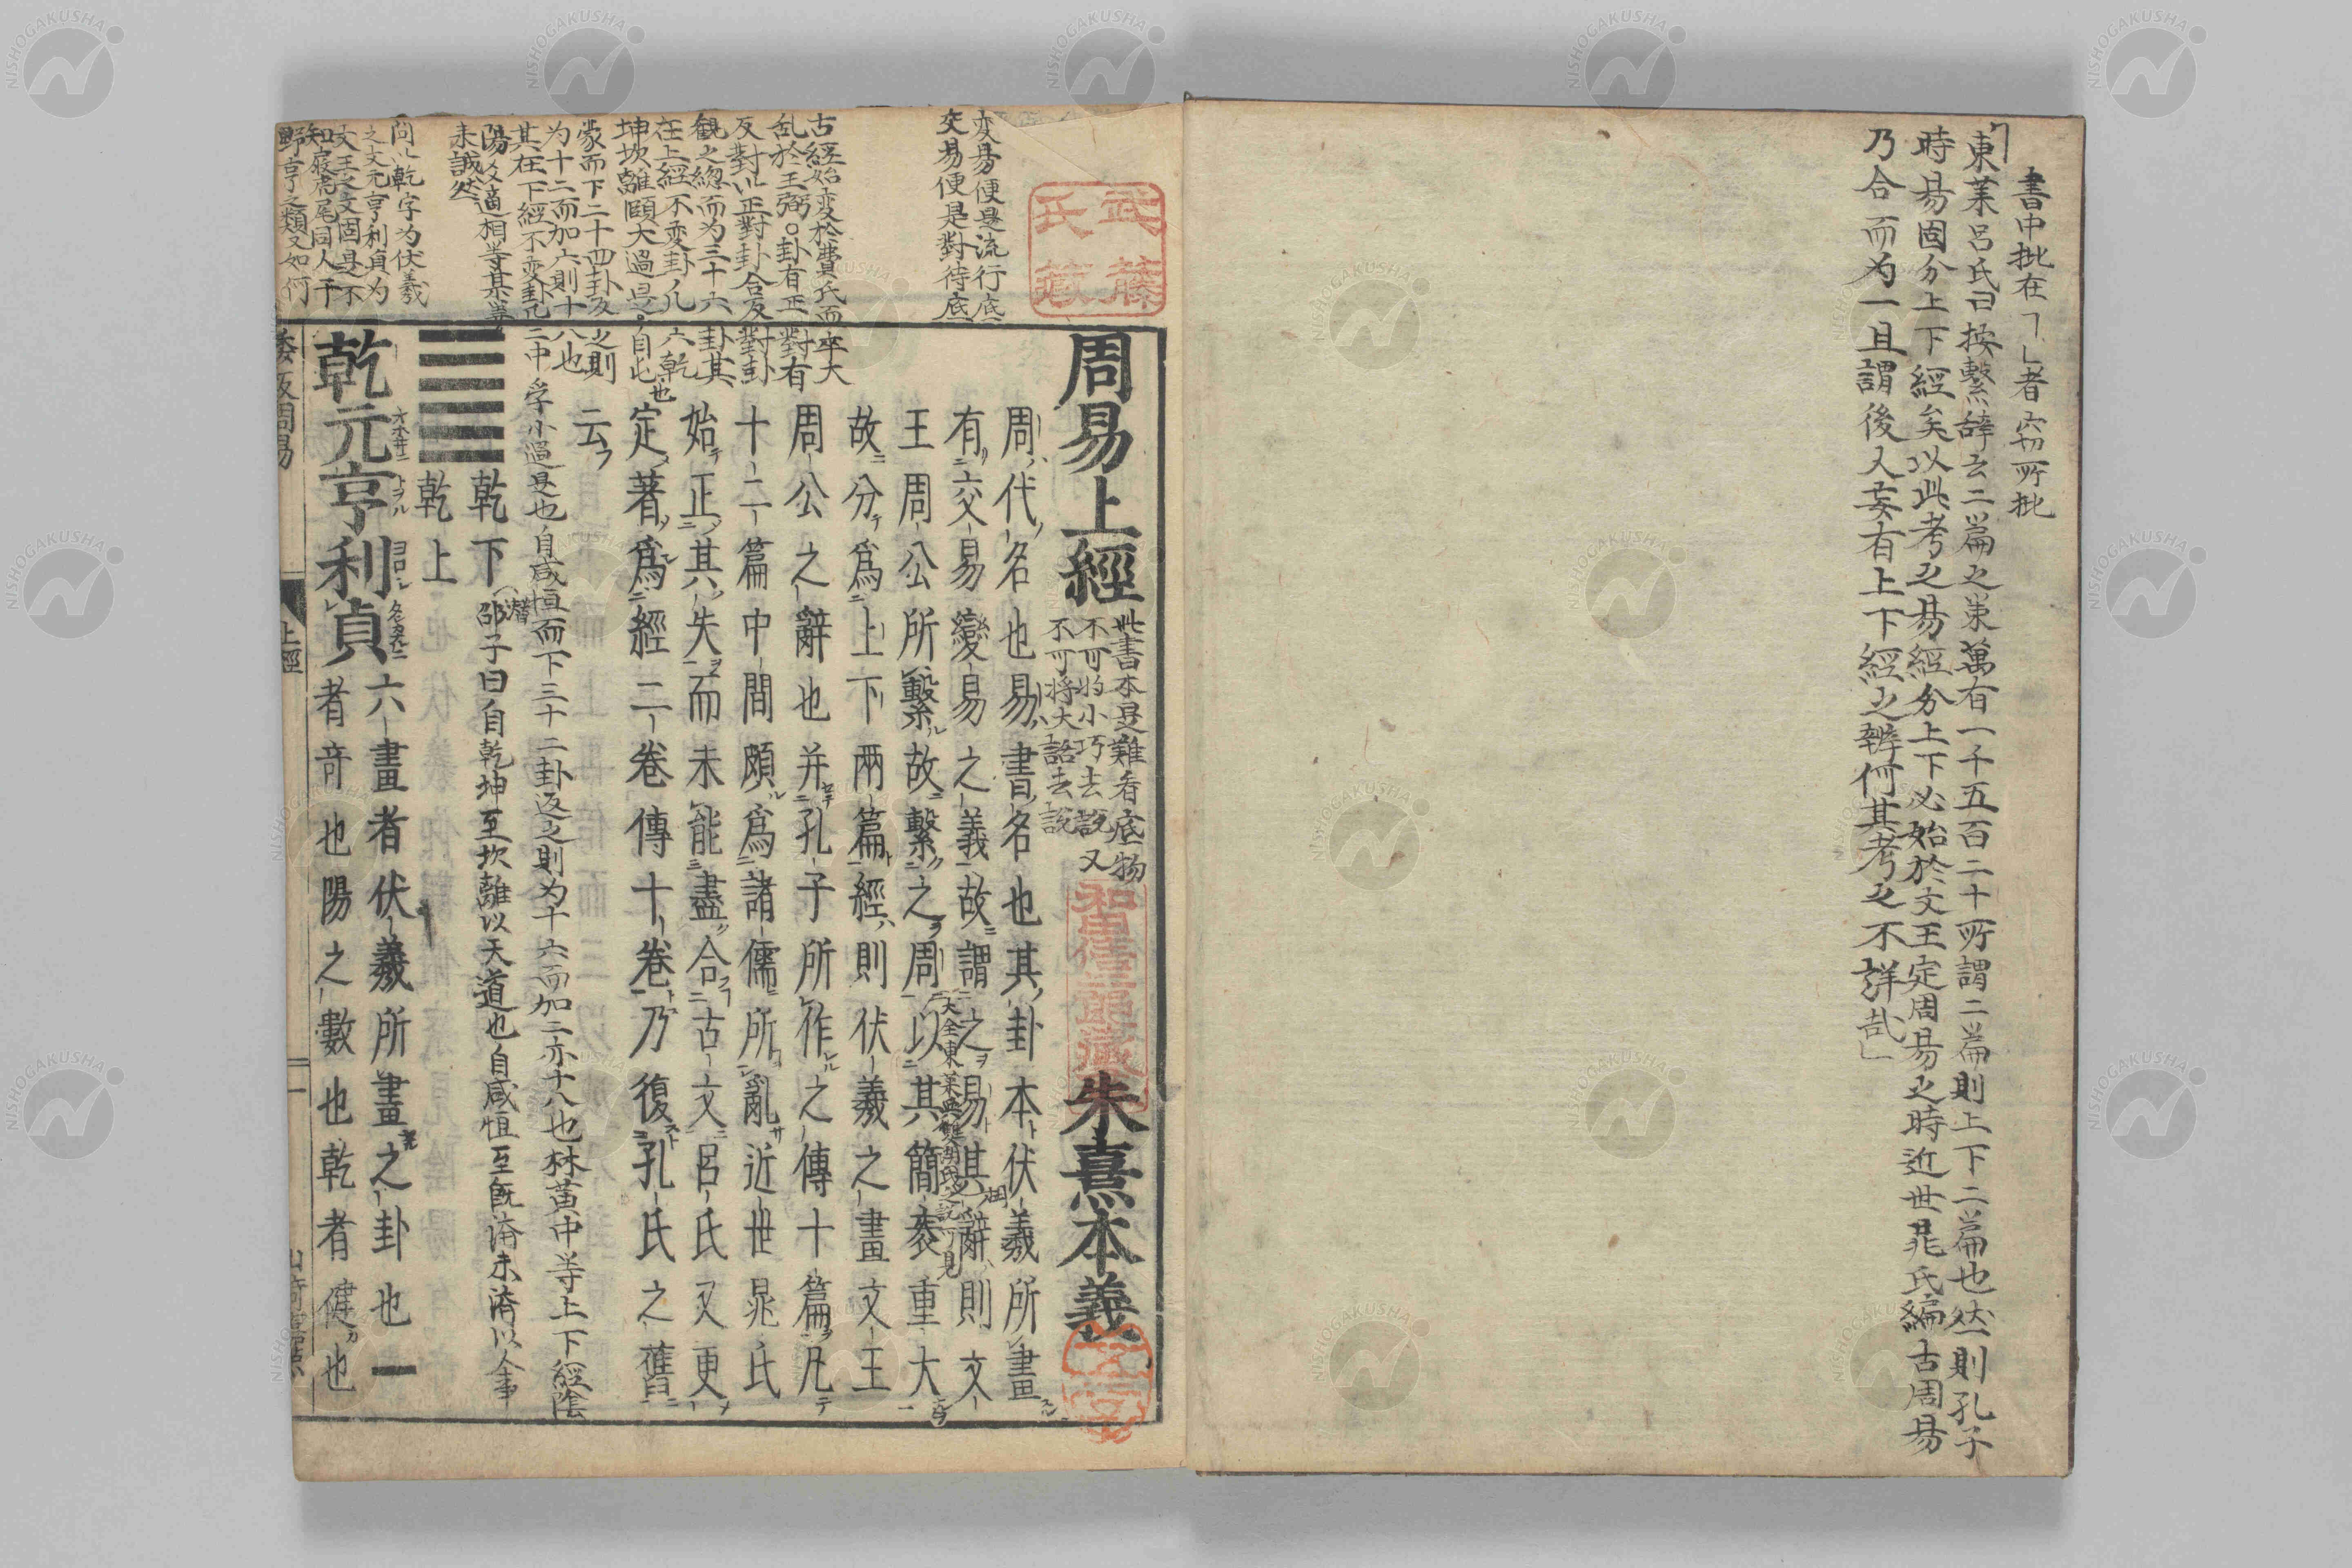 書中批在「」者窃所批
「東莱呂氏曰按繋辞云二篇之策萬有一千五百二十所謂二篇則上下二篇也然則孔子
時易固分上下經矣以此考之易經分上下必始於文王定周易之時近世晁氏編古周易
乃合而为一且謂後人妄有上下經之辨何其考之不詳哉」
変易便是流行底
交易便是對待底
古経始変於費氏而卒大
乱於王弼○卦有正對有
反對以正對卦合反對卦
観之総而为三十六卦其
在上經不変卦凡六乾
坤坎離頤大過是也自屯
蒙而下二十四卦反之則
为十二而加六則十八也
其在下經不変卦凡二中孚小過是也自咸恒而下三十二卦返之則为十六而加二亦十八也林黄中等上下經陰
陽爻適相等其善
未誠然
問以乾字为伏羲
之文元亨利貞为
文王之文固是不
知履虎尾同人于
野亨之類又如何
武藤
氏藏
周易上經
此書本是難看底物
不可将小巧去説又
不可将大話去説
朱熹本義
周代名也易書名也其卦本伏羲所畫
有交易變易之義故謂之易其辭則文
王周公所繫故繫之周以其簡袠重大
大全東莱與雙湖氏之説可見
故分爲上下兩篇經則伏羲之畫文王
周公之辭也并孔子所作之傳十篇凡
十二篇中間頗爲諸儒所亂近世晁氏
始正其失而未能盡合古文呂氏又更
定著爲經二卷傳十卷乃復孔氏之舊
云
乾下
乾上
邵子曰自乾坤至坎離以天道也自咸恒至既濟未濟以人事
乾元亨利貞
六畫者伏羲所畫之卦也一
者奇也陽之數也乾者健也
上經
一
NISHOGAKUSHA